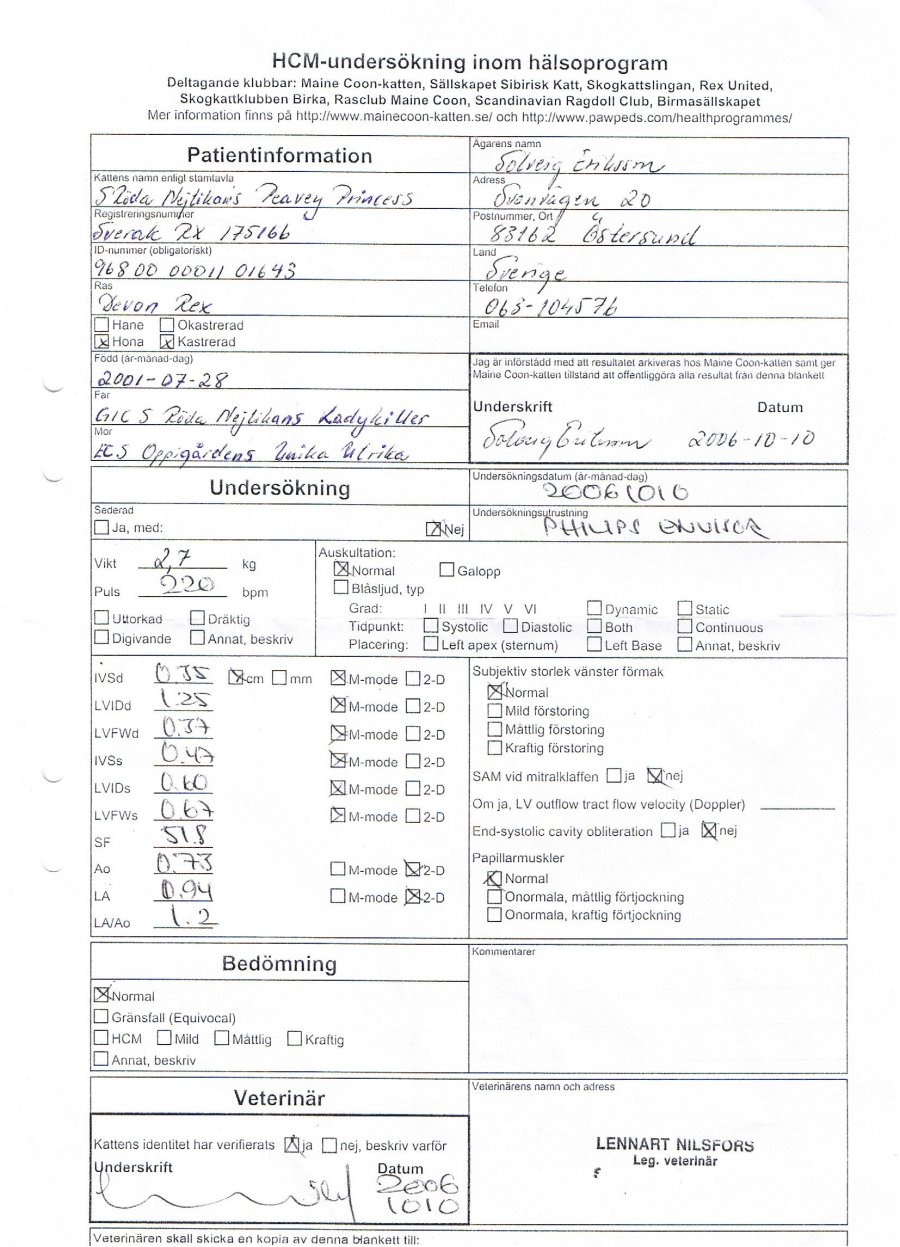 HCM-undersökning inom hälsoprogram
Deltagande klubbar: Maine Coon-katten, Sällskapet Sibirisk Katt, Skogkattslingan, Rex United,
Skogkattklubben Birka, Rasclub Maine Coon, Scandinavian Ragdoll Club, Birmasällskapet
Mer information finns på http://www.mainecoon-katten.se/ och http://www.pawpeds.com/healthprogrammes/
Patientinformation
Kattens namn enligt stamtavla
S Röda Nejlikans Peavey Princess
Registreringsnummer
Sverak RX 175166
ID-nummer (obligatoriskt)
968 00 00011 01643
Ras
Devon Rex
Hane Okastrerad
Hona Kastrerad
Född (år-månad-dag)
2001-07-28
Far
GIC S Röda Nejlikans Ladykiller
Mor
EC S Oppigårdens Unika Ulrika
Ägarens namn
Solveig Eriksson
Adress
Svanvägen 20
Postnummer, Ort
83162 Östersund
Land
Sverige
Telefon
063-104576
Email
Jag är införstådd med att resultatet arkiveras hos Maine Coon-katten samt ger
Maine Coon-katten tillstand att offentliggöra alla resultat från denna blankett
Underskrift Datum
Solveig Eriksson 2006-10-10
Undersökning
Sederad
Ja, med: Nej
Undersökningsdatum (år-månad-dag)
20061010
Undersökningsutrustning
PHILIPS ENVISOR
Vikt 2,7 kg
Puls 220 bpm
Uttorkad Dräktig
Digivande Annat, beskriv
Auskultation:
Normal Galopp
Blåsljud, typ
Grad: I II III IV V VI Dynamic Static
Tidpunkt: Systolic Diastolic Both Continuous
Placering: Left apex (sternum) Left Base Annat, beskriv
IVSd 0.35 cm mm M-mode 2-D
LVIDd 1.25 M-mode 2-D
LVFWd 0.37 M-mode 2-D
IVSs 0.47 M-mode 2-D
LVIDs 0.60 M-mode 2-D
LVFWs 0.67 M-mode 2-D
SF 51.8
Ao 0.73 M-mode 2-D
LA 0.94 M-mode 2-D
LA/Ao 1.2
Subjektiv storlek vänster förmak
Normal
Mild förstoring
Måttlig förstoring
Kraftig förstoring
SAM vid mitralklaffen ja nej
Om ja, LV outflow tract flow velocity (Doppler)
End-systolic cavity obliteration ja nej
Papillarmuskler
Normal
Onormala, måttlig förtjockning
Onormala, kraftig förtjockning
Bedömning
Normal
Gränsfall (Equivocal)
HCM Mild Måttlig Kraftig
Annat, beskriv
Kommentarer
Veterinär
Kattens identitet har verifierats ja nej, beskriv varför
Underskrift Datum
2006
1010
Veterinärens namn och adress
LENNART NILSFORS
Leg. veterinär
Veterinären skall skicka en kopia av denna blankett till: